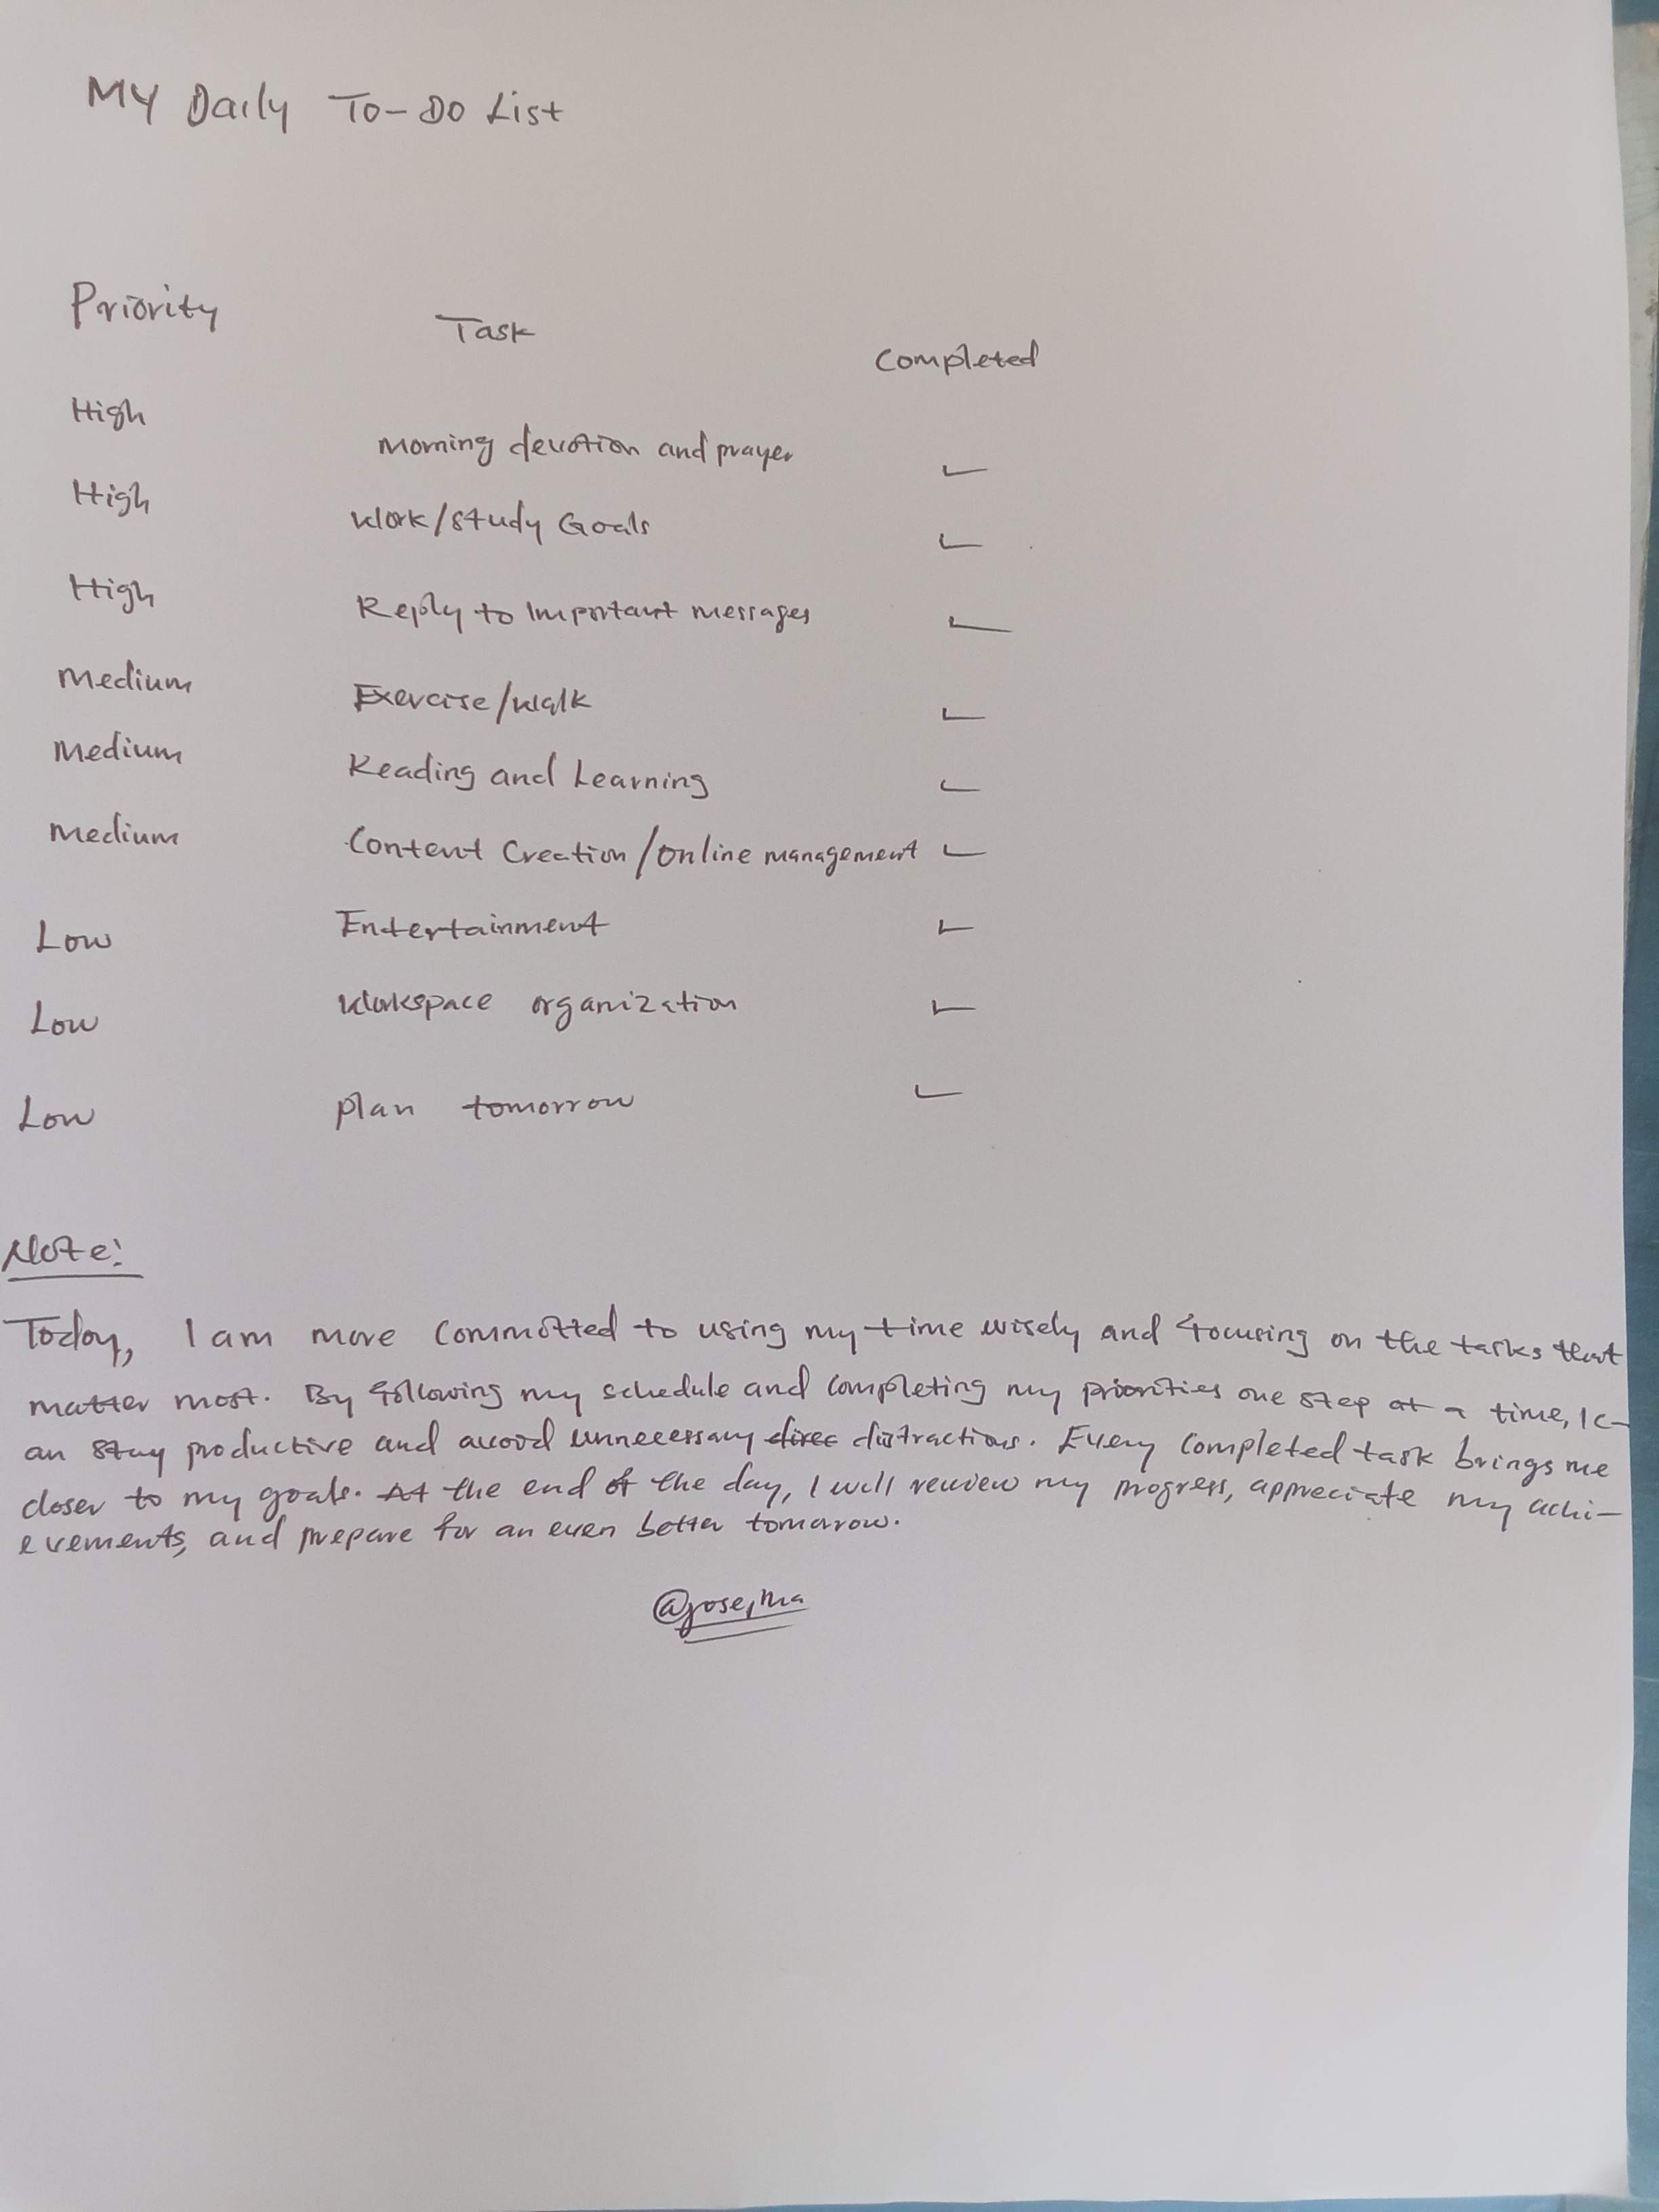 MY Daily To-Do List
Priority Task Completed
High Morning devotion and prayer ✓
High Work/Study Goals ✓
High Reply to Important messages ✓
Medium Exercise/Walk ✓
Medium Reading and Learning ✓
Medium Content Creation/Online management ✓
Low Entertainment ✓
Low Workspace organization ✓
Low Plan tomorrow ✓
Note:
Today, I am more committed to using my time wisely and focusing on the tasks that
matter most. By following my schedule and completing my priorities one step at a time, I c-
an stay productive and avoid unnecessary direc distractions. Every completed task brings me
closer to my goals. At the end of the day, I will review my progress, appreciate my achi-
evements, and prepare for an even better tomorrow.